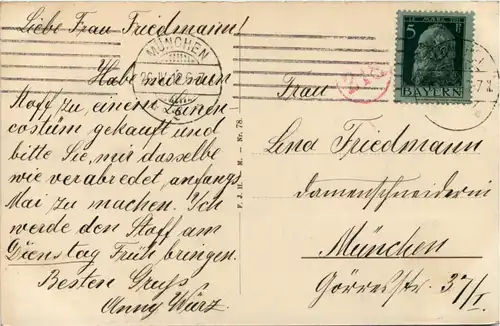 Liebe Frau Friedmann!
Habe mir nun
Stoff zu einem Leinen-
costüm gekauft und
bitte Sie, mir dasselbe
wie verabredet, anfangs
Mai zu machen. Ich
werde den Stoff am
Dienstag Früh bringen.
Besten Gruß
Anny Würz.
F. J. H. M. - Nr. 78.
MÜNCHEN
12. MÄRZ 1911
5 Pf
BAYERN
Frau
Lina Friedmann
Damenschneiderin
München
Görresstr. 37/I.